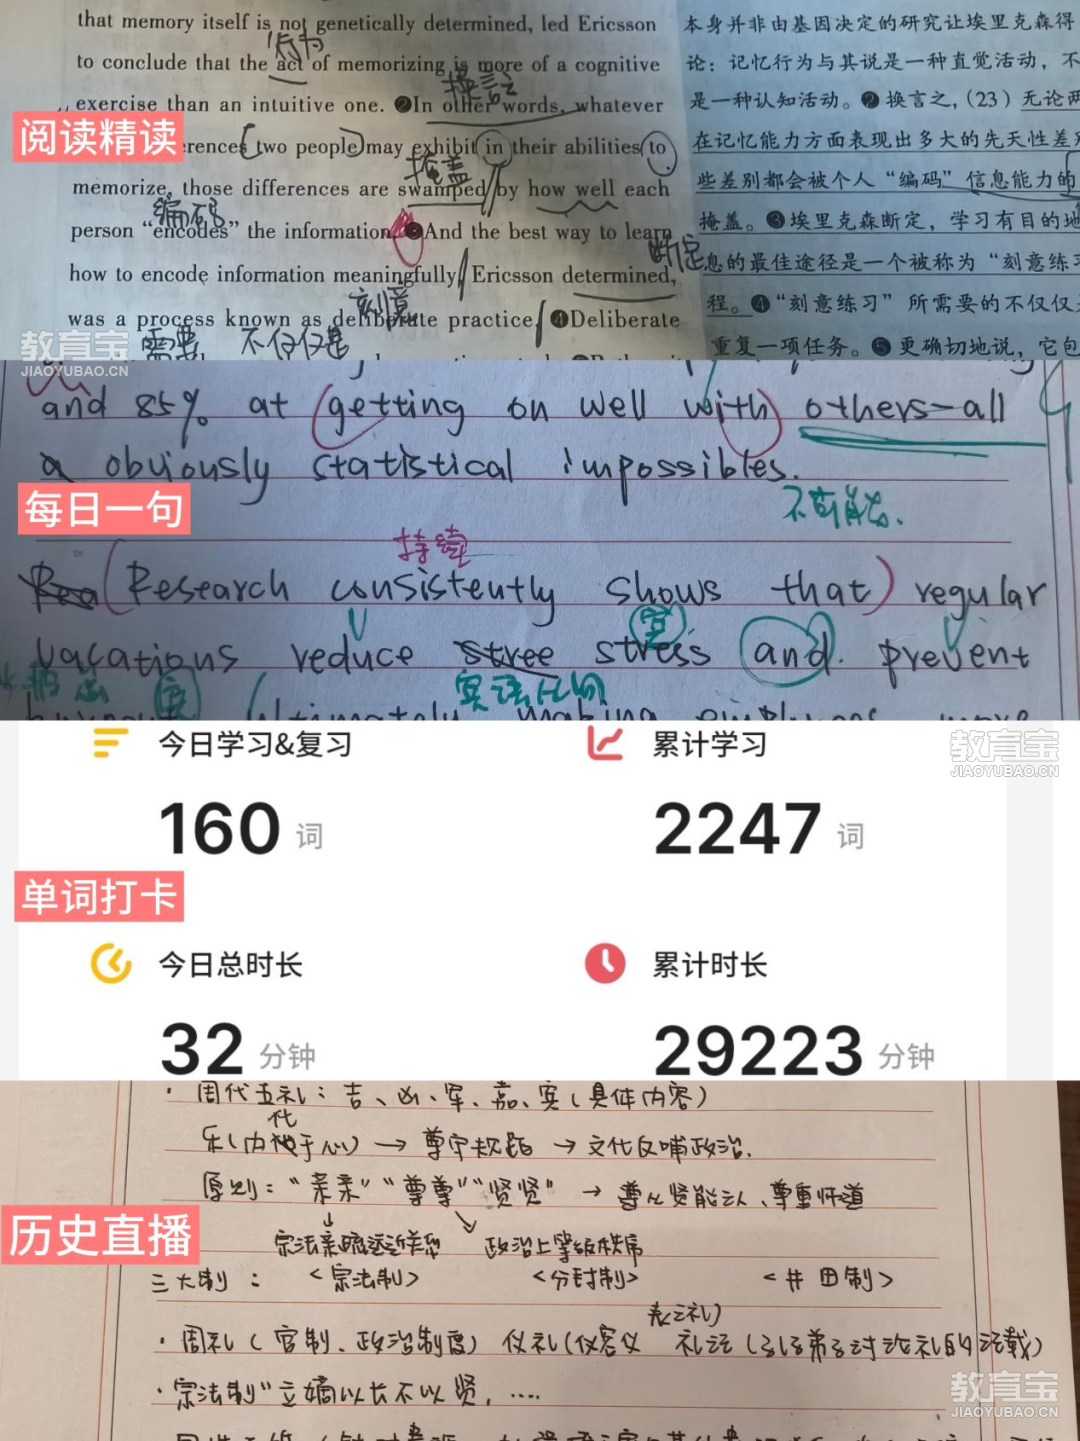 that memory itself is not genetically determined, led Ericsson
to conclude that the act of memorizing is more of a cognitive
行为
换言之
exercise than an intuitive one. ❷In other words, whatever
阅读精读
rences two people may exhibit in their abilities to
掩盖
memorize, those differences are swamped by how well each
编码
person “encodes” the information. ❸And the best way to learn
断定
how to encode information meaningfully, Ericsson determined,
刻意
was a process known as deliberate practice. ❹Deliberate
需要 不仅仅是
本身并非由基因决定的研究让埃里克森得
论：记忆行为与其说是一种直觉活动，不
是一种认知活动。❷换言之，(23) 无论两
在记忆能力方面表现出多大的先天性差
些差别都会被个人“编码”信息能力的
掩盖。❸埃里克森断定，学习有目的地
息的最佳途径是一个被称为“刻意练习
程。❹“刻意练习”所需要的不仅仅
重复一项任务。❺更确切地说，它包
教育宝
JIAOYUBAO.CN
and 85% at (getting on well with) others-all
a obviously statistical impossibles.
不可能
每日一句
持续
(Research consistently shows that) regular
宾
vacations reduce stress and prevent
宾
Ultimately making employees more
今日学习&复习 累计学习
160 词 2247 词
教育宝
JIAOYUBAO.CN
单词打卡
今日总时长 累计时长
32 分钟 29223 分钟
· 周代五礼：吉、凶、军、嘉、宾（具体内容）
乐（内化于心）→ 尊守规矩 → 文化反哺政治.
原则：“亲亲”“尊尊”“贤贤” → 尊从贤能之人、尊重师道
历史直播
政治上等级秩序
三大制： <宗法制> <分封制> <井田制>
· 周礼（官制、政治制度） 仪礼（仪容仪表之礼）
· 宗法制“立嫡以长不以贤，....
教育宝
JIAOYUBAO.CN